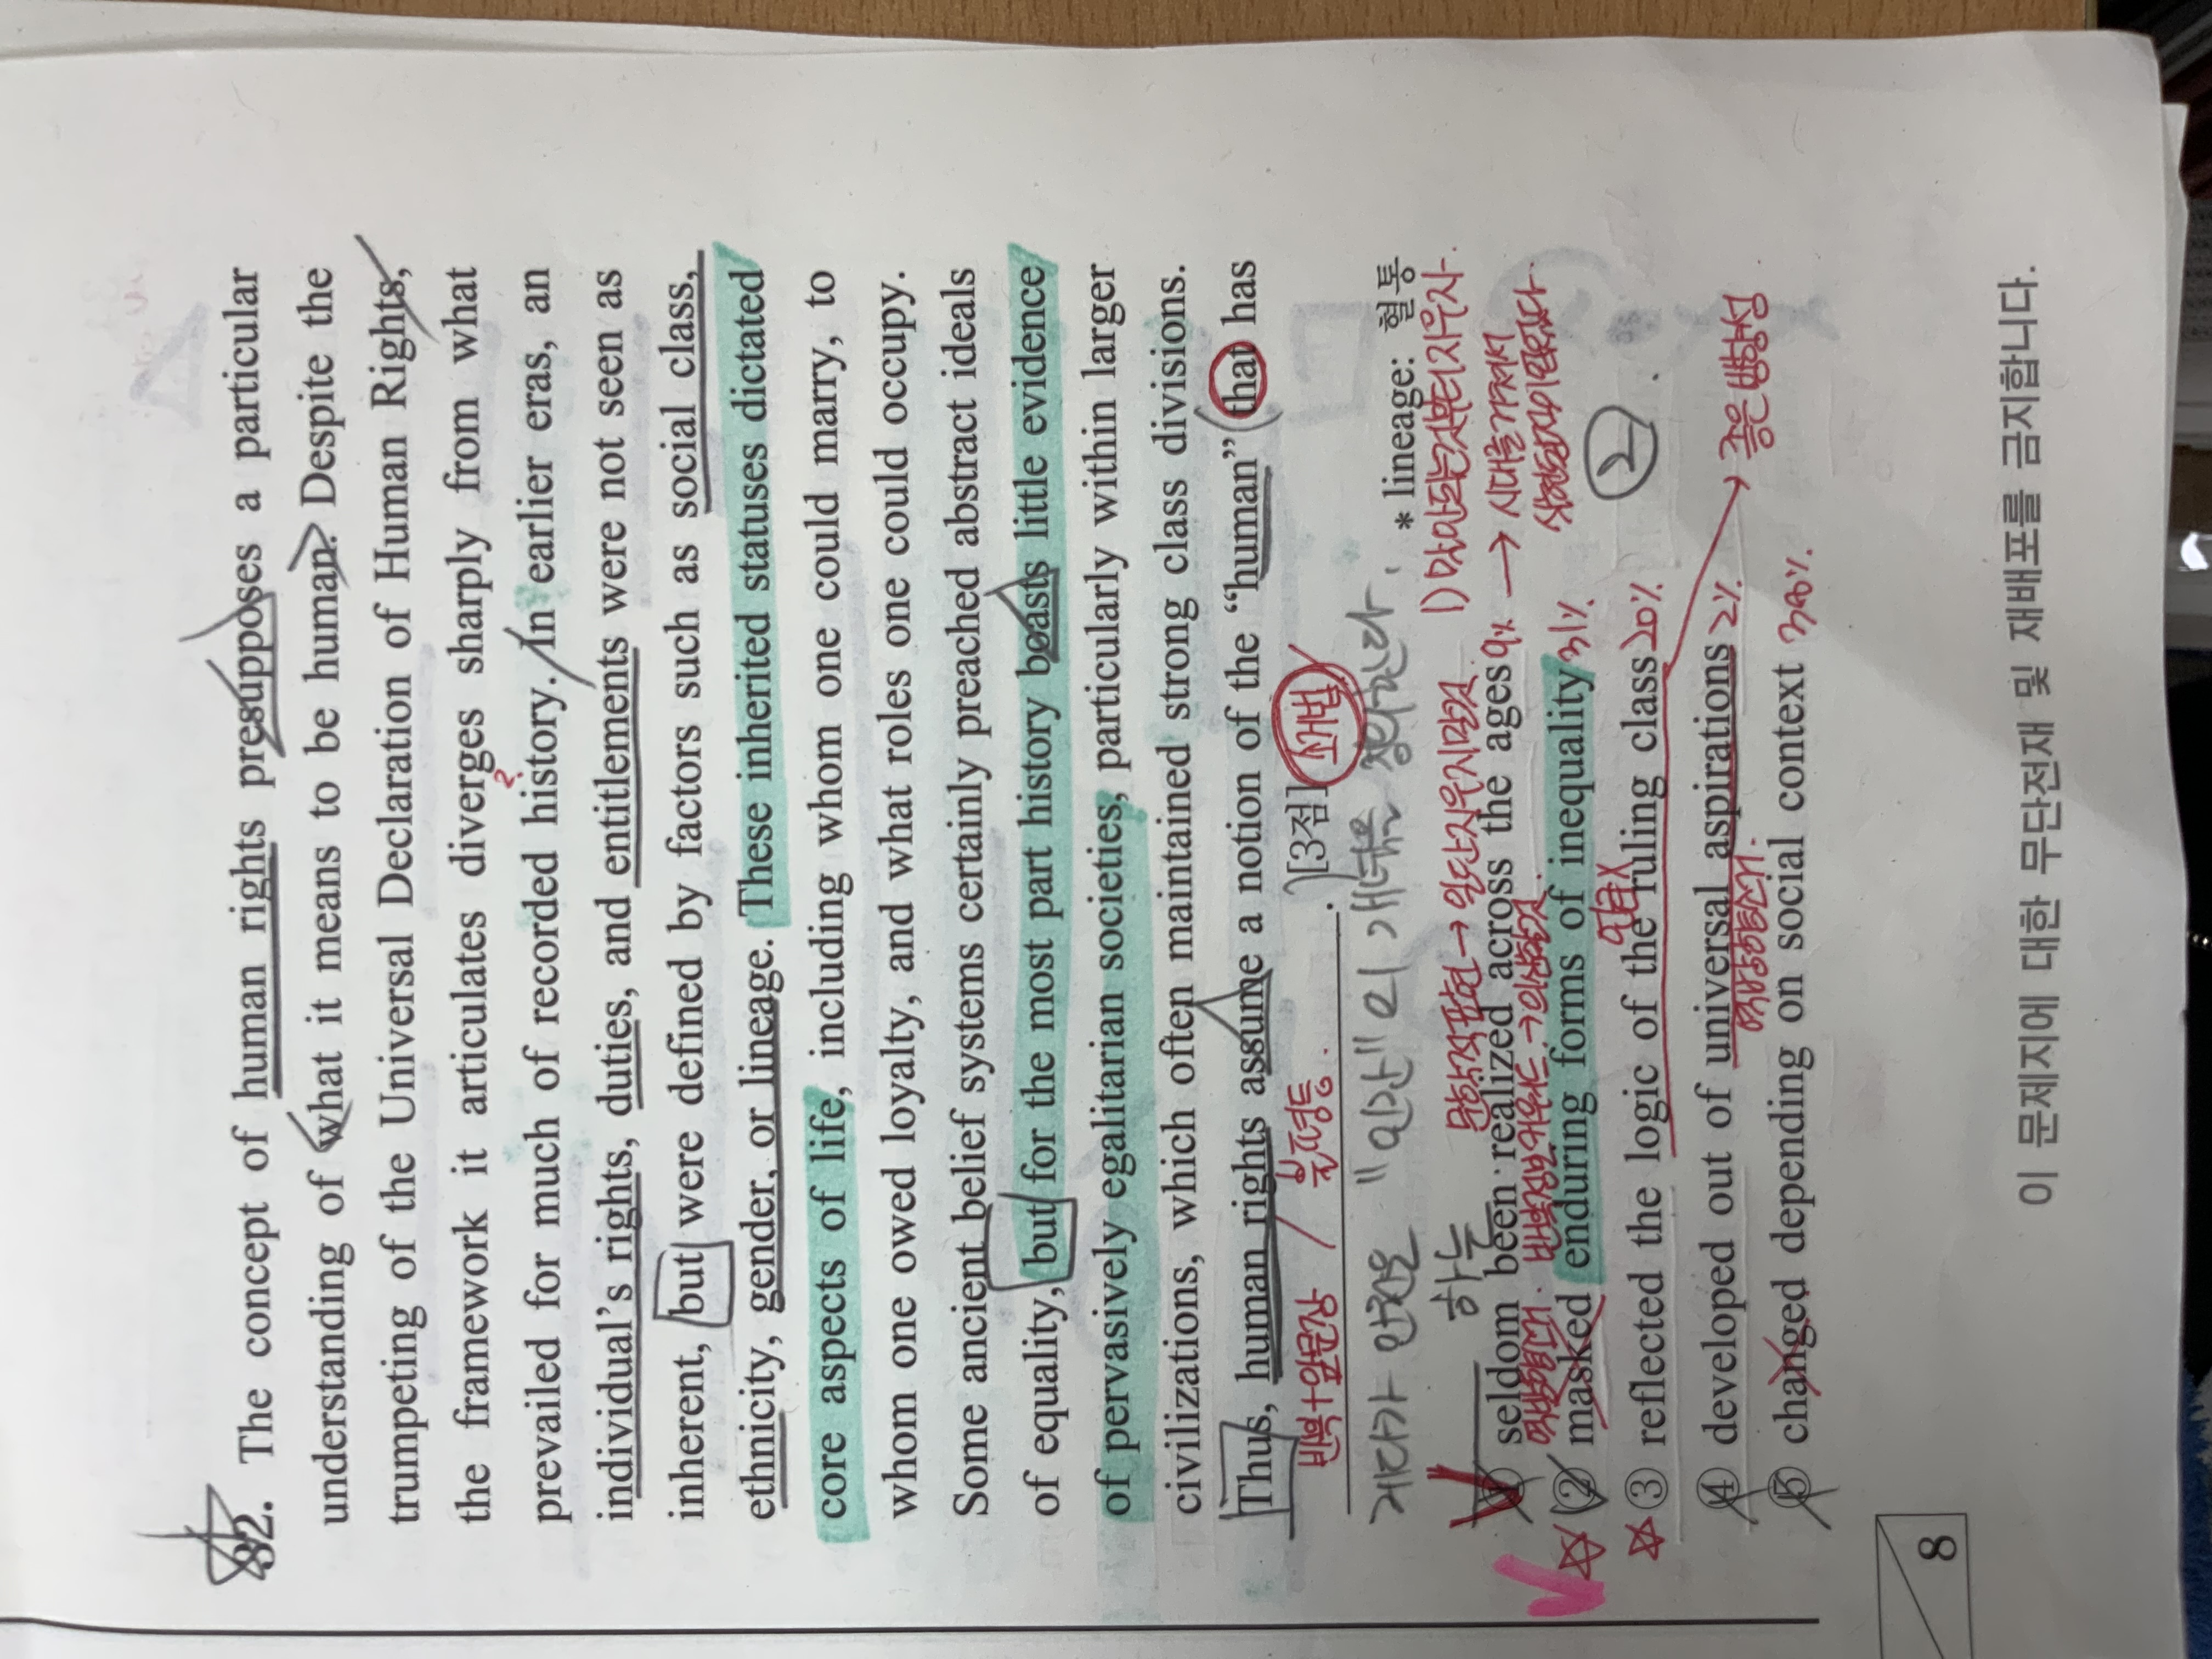 32. The concept of human rights presupposes a particular
understanding of what it means to be human. Despite the
trumpeting of the Universal Declaration of Human Rights,
the framework it articulates diverges sharply from what
prevailed for much of recorded history. In earlier eras, an
individual's rights, duties, and entitlements were not seen as
inherent, but were defined by factors such as social class,
ethnicity, gender, or lineage. These inherited statuses dictated
core aspects of life, including whom one could marry, to
whom one owed loyalty, and what roles one could occupy.
Some ancient belief systems certainly preached abstract ideals
of equality, but for the most part history boasts little evidence
of pervasively egalitarian societies, particularly within larger
civilizations, which often maintained strong class divisions.
Thus, human rights assume a notion of the “human” that has
반복+앞문장 / 불평등.
. [3점] 꼬기법
게다가 인권은 "인간"의 개념을
하는
* lineage: 혈통
문학적표현 → 일단지우지말것.
① seldom been realized across the ages 9%
② masked enduring forms of inequality 31%
역방향
③ reflected the logic of the ruling class 20%
언급X
④ developed out of universal aspirations 2%
→ 좋은 방향성
⑤ changed depending on social context 38%.
2
8
이 문제지에 대한 무단전재 및 재배포를 금지합니다.